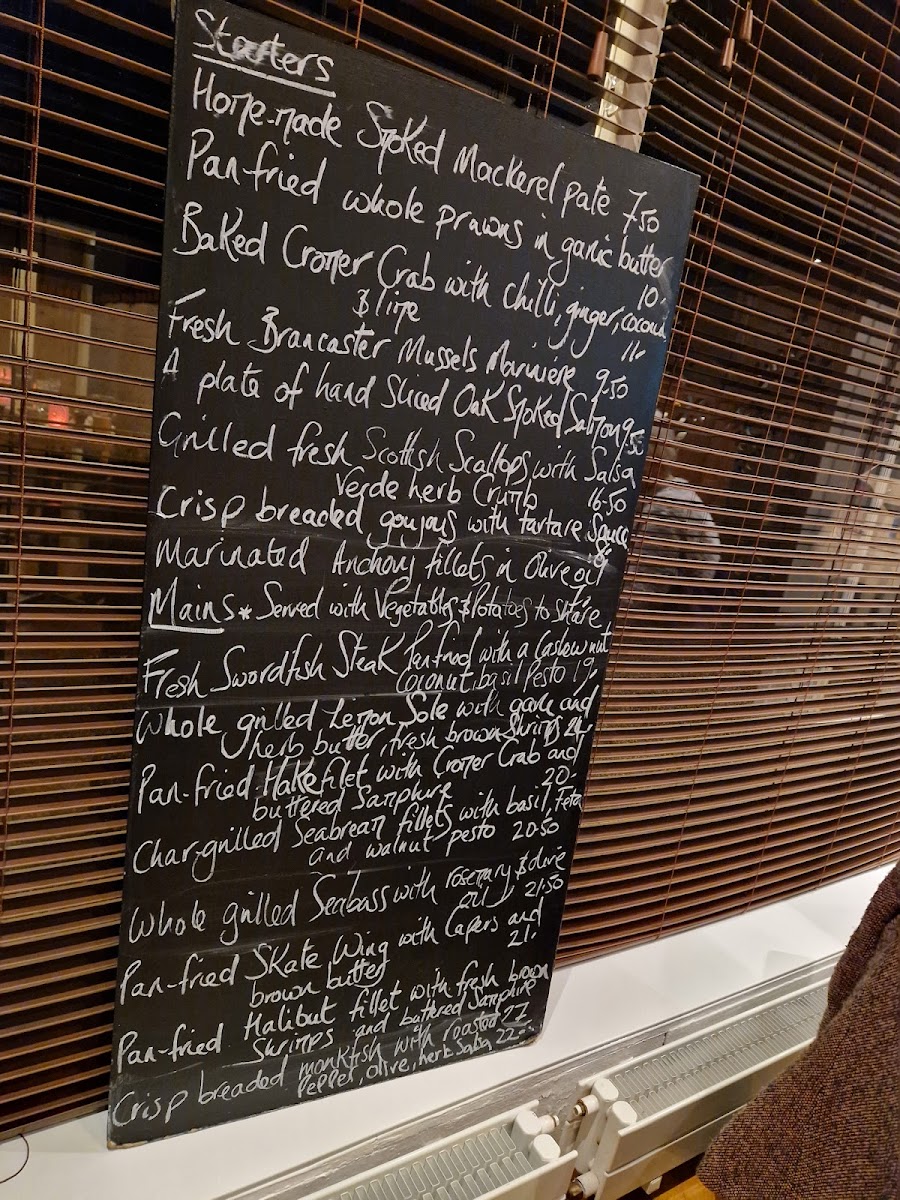 Starters
Home-made Smoked Mackerel pate 7.50
Pan fried whole prawns in garlic butter
10.
Baked Cromer Crab with chilli, ginger, coconut
& lime 11.
Fresh Brancaster Mussels Mariniere 9.50
A plate of hand Sliced Oak Smoked Salmon 9.50
Grilled fresh Scottish Scallops with Salsa
Verde herb Crumb 16.50
Crisp breaded goujons with tartare Sauce
Marinated Anchovy fillets in Olive oil
Mains * Served with Vegetables & Potatoes to share
Fresh Swordfish Steak Panfried with a Cashew nut
Coconut, basil Pesto 19.
Whole grilled Lemon Sole with garlic and
herb butter, fresh brown Shrimps 24.
Pan-fried Hake filet with Cromer Crab and
buttered Samphire 20.
Char-grilled Seabream fillets with basil, Feta
and walnut pesto 20.50
Whole grilled Seabass with rosemary & olive
oil 21.50
Pan-fried Skate Wing with Capers and
brown butter 21.
Pan-fried Halibut fillet with fresh brown
Shrimps and buttered Samphire 27
Crisp breaded monkfish with roasted
Pepper, olive, herb Salsa 22.